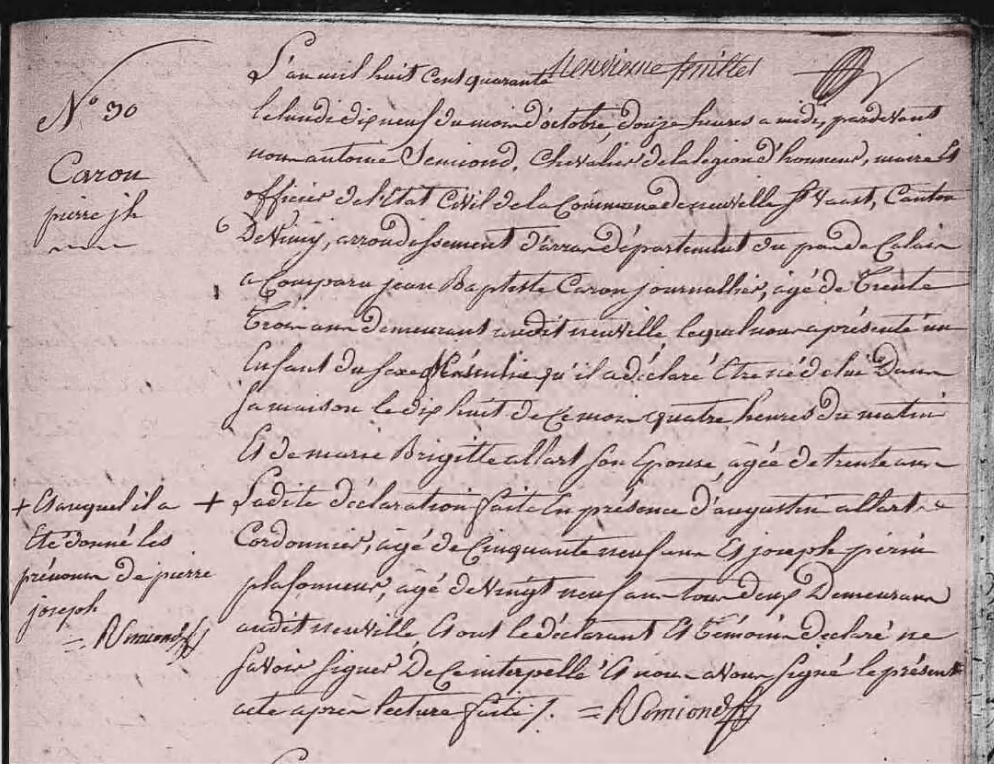 neuvieme feuillet
N° 30
Caron
pierre jh
L'an mil huit cent quarante
le lundi dix neuf du mois d'octobre douze heures a midi, pardevant
nous antoine Semiond, Chevalier de la legion d'honneur, maire Et
officier de l'Etat Civil de la Commune de neuville St Vaast, Canton
De Vimy, arrondissement d'arras département du pas de Calais
a Comparu jean Baptiste Caron journallier, agé de Trente
Trois ans demeurant audit neuville, lequel nous a présenté un
Enfant du sexe Masculin qu'il a déclaré Etre né de lui Dans
sa maison le dix huit de Ce mois quatre heures du matin
Et de marie Brigitte allart son Epouse, agée de trente ans
+ Et auquel il a
Eté donné les
prénoms de pierre
joseph
= ASemiond
+ Ladite déclaration faite En présence d'augustin allart
Cordonnier, agé de Cinquante neuf ans Et joseph perin
plafonneur, agé de Vingt neuf ans tous deux Demeurans
audit neuville Et ont le déclarant Et témoins declaré ne
savoir signer De Ce interpellé Et nous avons signé le présent
acte après lecture faite /. = ASemiond